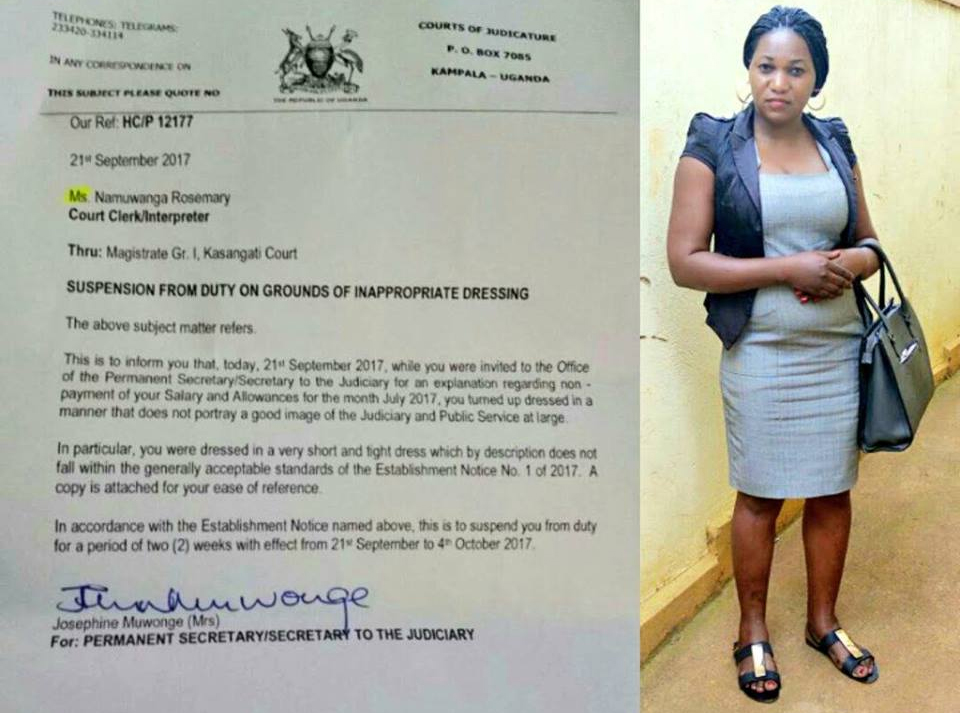 TELEPHONES: TELEGRAMS:
233420-334114
IN ANY CORRESPONDENCE ON
THIS SUBJECT PLEASE QUOTE NO
THE REPUBLIC OF UGANDA
COURTS OF JUDICATURE
P. O. BOX 7085
KAMPALA – UGANDA
Our Ref: HC/P 12177
21st September 2017
Ms. Namuwanga Rosemary
Court Clerk/Interpreter
Thru: Magistrate Gr. I, Kasangati Court
SUSPENSION FROM DUTY ON GROUNDS OF INAPPROPRIATE DRESSING
The above subject matter refers.
This is to inform you that, today, 21st September 2017, while you were invited to the Office
of the Permanent Secretary/Secretary to the Judiciary for an explanation regarding non -
payment of your Salary and Allowances for the month July 2017, you turned up dressed in a
manner that does not portray a good image of the Judiciary and Public Service at large.
In particular, you were dressed in a very short and tight dress which by description does not
fall within the generally acceptable standards of the Establishment Notice No. 1 of 2017. A
copy is attached for your ease of reference.
In accordance with the Establishment Notice named above, this is to suspend you from duty
for a period of two (2) weeks with effect from 21st September to 4th October 2017.
Josephine Muwonge (Mrs)
For: PERMANENT SECRETARY/SECRETARY TO THE JUDICIARY